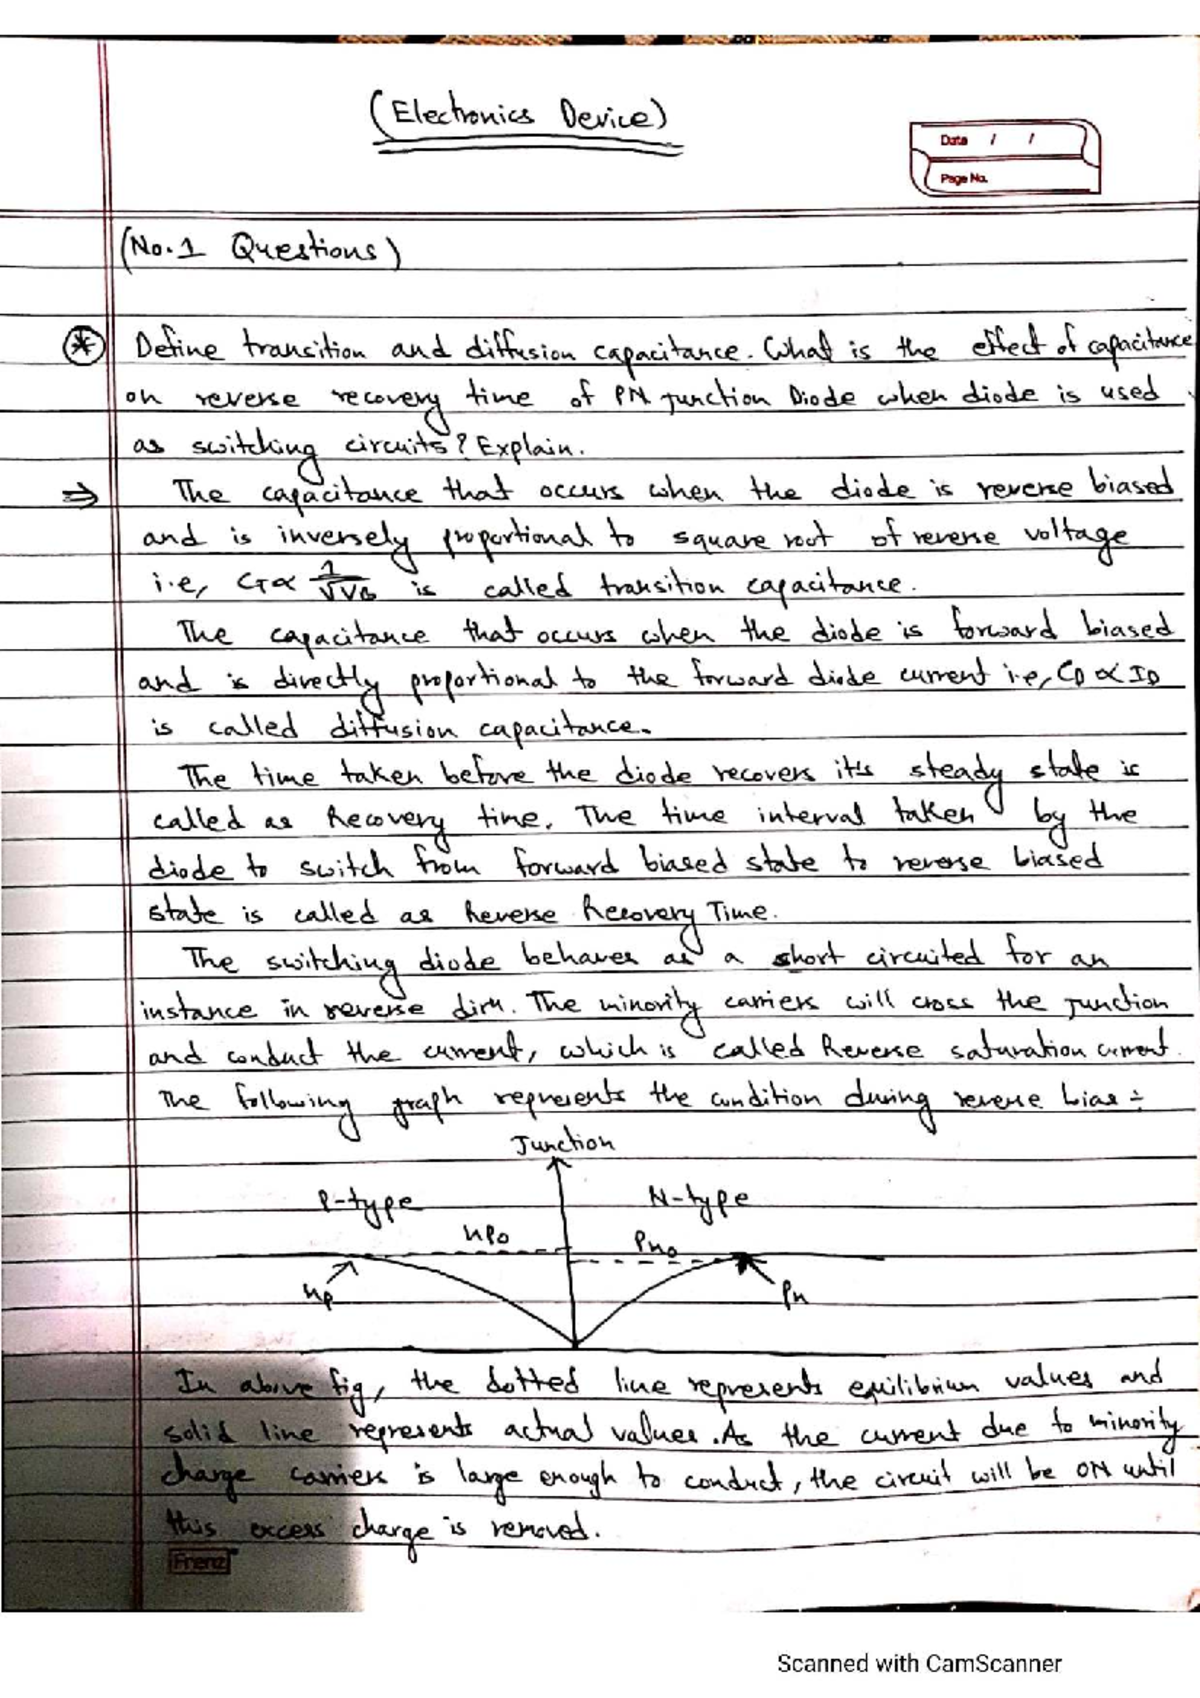 (Electronics Device)
Date / /
Page No.
(No.1 Questions)
* Define transition and diffusion capacitance. What is the effect of capacitance
on reverse recovery time of PN junction Diode when diode is used
as switching circuits? Explain.
⇒ The capacitance that occurs when the diode is reverse biased
and is inversely proportional to square root of reverse voltage
i.e, CT ∝ 1/√VB is called transition capacitance.
The capacitance that occurs when the diode is forward biased
and is directly proportional to the forward diode current i.e, CD ∝ ID
is called diffusion capacitance.
The time taken before the diode recovers it's steady state is
called as Recovery time. The time interval taken by the
diode to switch from forward biased state to reverse biased
state is called as Reverse Recovery Time.
The switching diode behaves as a short circuited for an
instance in reverse dirn. The minority carriers will cross the junction
and conduct the current, which is called Reverse saturation current.
The following graph represents the condition during reverse bias :-
Junction
P-type N-type
npo Pno
np Pn
In above fig, the dotted line represents equilibrium values and
solid line represents actual values. As the current due to minority
charge carriers is large enough to conduct, the circuit will be ON until
this excess charge is removed.
Frenz
Scanned with CamScanner